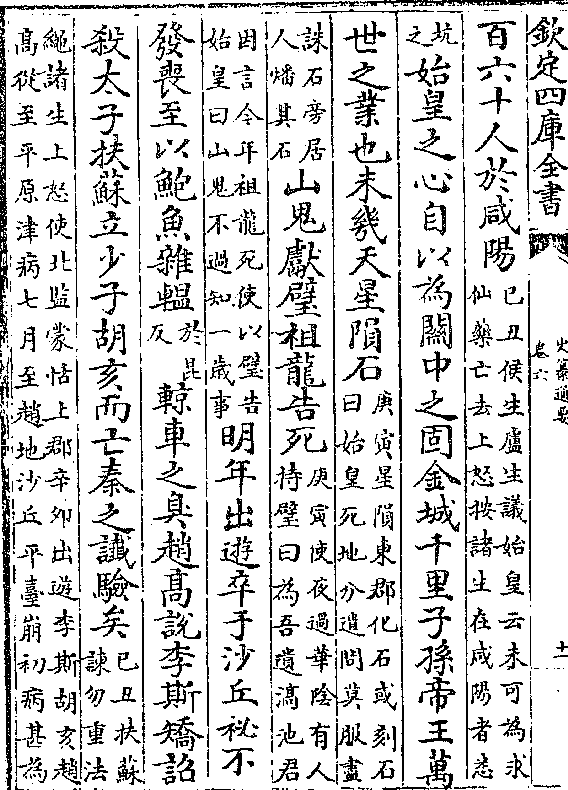 欽定四庫全書
史纂通要
卷六
十一
百六十人於咸陽已丑侯生盧生議始皇云未可為求仙藥亡去上怒按諸生在咸陽者悉
坑之始皇之心自以為關中之固金城千里子孫帝王萬
世之業也未幾天星隕石庚寅星隕東郡化石或刻石曰始皇死地分遣問莫服盡
誅石旁居人燔其石山鬼獻璧祖龍告死庚寅使夜過華陰有人持璧曰為吾遺滈池君
因言今年祖龍死使以璧告始皇曰山鬼不過知一歲事明年出遊卒于沙丘祕不
發喪至以鮑魚雜轀於昆反輬車之臭趙髙說李斯矯詔
殺太子扶蘇立少子胡亥而亡秦之讖驗矣已丑扶蘇諫勿重法
繩諸生上怒使北監蒙恬上郡辛卯出遊李斯胡亥趙髙從至平原津病七月至趙地沙丘平臺崩初病甚為